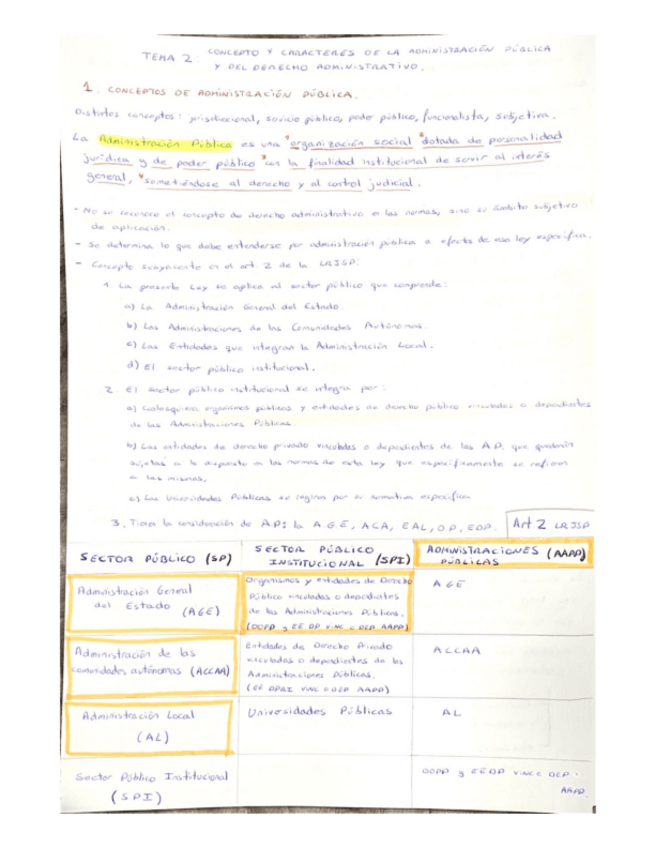 TEMA 2: CONCEPTO Y CARACTERES DE LA ADMINISTRACIÓN PÚBLICA
Y DEL DERECHO ADMINISTRATIVO.
1. CONCEPTOS DE ADMINISTRACIÓN PÚBLICA.
Distintos conceptos: jurisdiccional, servicio público, poder público, funcionalista, subjetiva.
La Administración Pública es una organización social dotada de personalidad
jurídica y de poder público con la finalidad institucional de servir al interés
general, sometiéndose al derecho y al control judicial.
- No se reconoce el concepto de derecho administrativo en las normas, sino su ámbito subjetivo
de aplicación.
- Se determina lo que debe entenderse por administración pública a efectos de esa ley específica.
- Concepto subyacente en el art. 2 de la LRJSP:
1. La presente Ley se aplica al sector público que comprende:
a) La Administración General del Estado.
b) Las Administraciones de las Comunidades Autónomas.
c) Las Entidades que integran la Administración Local.
d) El sector público institucional.
2. El sector público institucional se integra por:
a) Cualesquiera organismos públicos y entidades de derecho público vinculados o dependientes
de las Administraciones Públicas.
b) Las entidades de derecho privado vinculadas o dependientes de las A.P. que quedarán
sujetas a lo dispuesto en las normas de esta ley que específicamente se refieran
a las mismas.
c) Las Universidades Públicas se regirán por su normativa específica
3. Tienen la consideración de A.P: la A.G.E, ACA, EAL, O.P, EDP.
Art 2 LRJSP
SECTOR PÚBLICO (SP)
SECTOR PÚBLICO
INSTITUCIONAL (SPI)
ADMINISTRACIONES (AAPP)
PÚBLICAS
Administración General
del Estado (AGE)
Organismos y entidades de Derecho
Público vinculados o dependientes
de las Administraciones Públicas.
(OOPP y EE DP VINC o DEP AAPP)
AGE
Administración de las
comunidades autónomas (ACCAA)
Entidades de Derecho Privado
vinculadas o dependientes de las
Administraciones Públicas.
(EE DPRI VINC o DEP AAPP)
ACCAA
Administración Local
(AL)
Universidades Públicas
AL
Sector Público Institucional
(SPI)
OOPP y EEDP VINC o DEP.
AAPP.